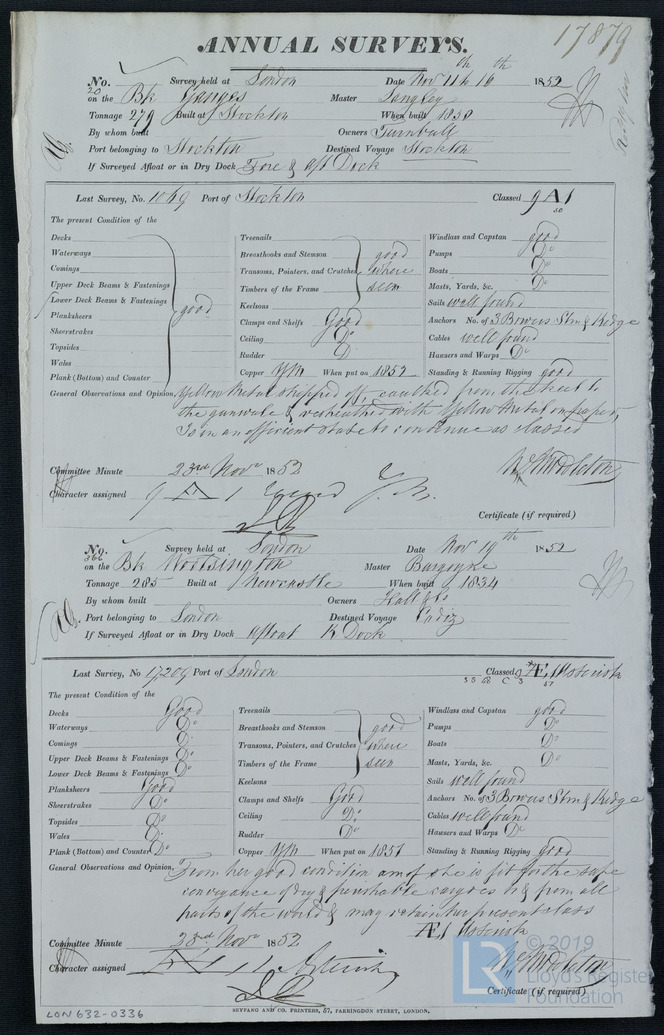 17879
ANNUAL SURVEYS.
No. 20 Survey held at London Date Nov 11th 16th 1852
on the Bk Ganges Master Langley
Tonnage 279 Built at Stockton When built 1850
By whom built Owners Turnbull
Port belonging to Stockton Destined Voyage Stockton
If Surveyed Afloat or in Dry Dock Fore & Aft Dock
Last Survey, No. 1069 Port of Stockton Classed 9 A 1
50
The present Condition of the
Decks
Waterways
Comings
Upper Deck Beams & Fastenings
Lower Deck Beams & Fastenings
Planksheers
Sheerstrakes
Topsides
Wales
Plank (Bottom) and Counter
good
Treenails
Breasthooks and Stemson
Transoms, Pointers, and Crutches
Timbers of the Frame
good where seen
Keelsons
Clamps and Shelfs Good
Ceiling Do
Rudder Do
Copper YM When put on 1852
Windlass and Capstan good
Pumps Do
Boats Do
Masts, Yards, &c. Do
Sails well found
Anchors No. of 3 Bowers Stm & Kedge
Cables well found
Hawsers and Warps Do
Standing & Running Rigging good
General Observations and Opinion, Yellow Metal stripped off, caulked from the keel to
the gunwale & resheathed with Yellow Metal on paper,
Is in an efficient state to continue as classed
Committee Minute 23rd Novr 1852
Character assigned 9 A 1
Certificate (if required)
No. 366 Survey held at London Date Nov 19th 1852
on the Bk Master Burgoyne
Tonnage 285 Built at Newcastle When built 1834
By whom built Owners Hall & Co
Port belonging to London Destined Voyage Cadiz
If Surveyed Afloat or in Dry Dock Afloat K Dock
Last Survey, No 17209 Port of London Classed *Æ1 Asterisk
The present Condition of the
Decks Good
Waterways Do
Comings Do
Upper Deck Beams & Fastenings Do
Lower Deck Beams & Fastenings Do
Planksheers Good
Sheerstrakes Do
Topsides Do
Wales Do
Plank (Bottom) and Counter Do
Treenails
Breasthooks and Stemson
Transoms, Pointers, and Crutches
Timbers of the Frame
good where seen
Keelsons
Clamps and Shelfs Good
Ceiling Do
Rudder Do
Copper YM When put on 1851
Windlass and Capstan good
Pumps Do
Boats Do
Masts, Yards, &c. Do
Sails well found
Anchors No. of 3 Bowers Stm & Kedge
Cables well found
Hawsers and Warps Do
Standing & Running Rigging good
General Observations and Opinion, From her good condition am of she is fit for the safe
conveyance of dry & perishable cargoes to & from all
parts of the world & may retain her present class
Æ1 Asterisk
Committee Minute 23rd Novr 1852
Character assigned Æ 1 Asterisk
Certificate (if required)
SEYFANG AND CO. PRINTERS, 57, FARRINGDON STREET, LONDON.
LON 632-0336
LR © 2019
Lloyd's Register
Foundation